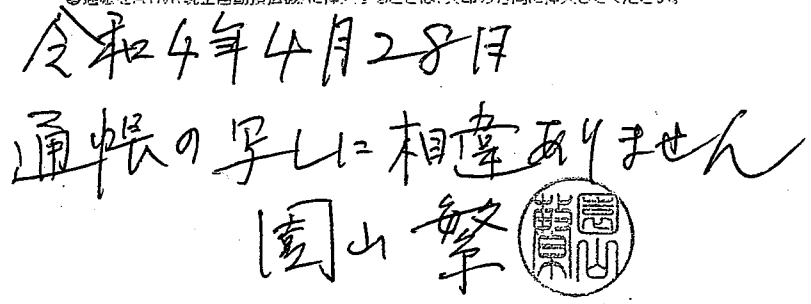 令和4年4月28日
通帳の写しに相違ありません
園山 繁
園山繁